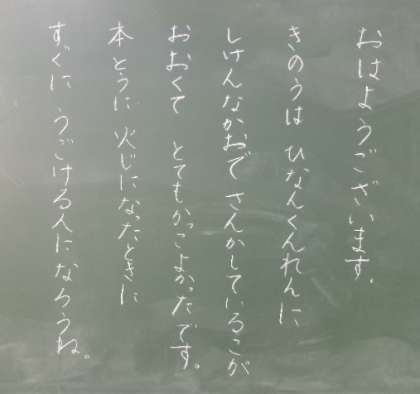 おはようございます.
きのうは ひなんくんれんに
しけんなかおで さんかしているこが
おおくて とてもかっこよかったです。
本とうに 火じになったときに
すぐに うごける人に なろうね。